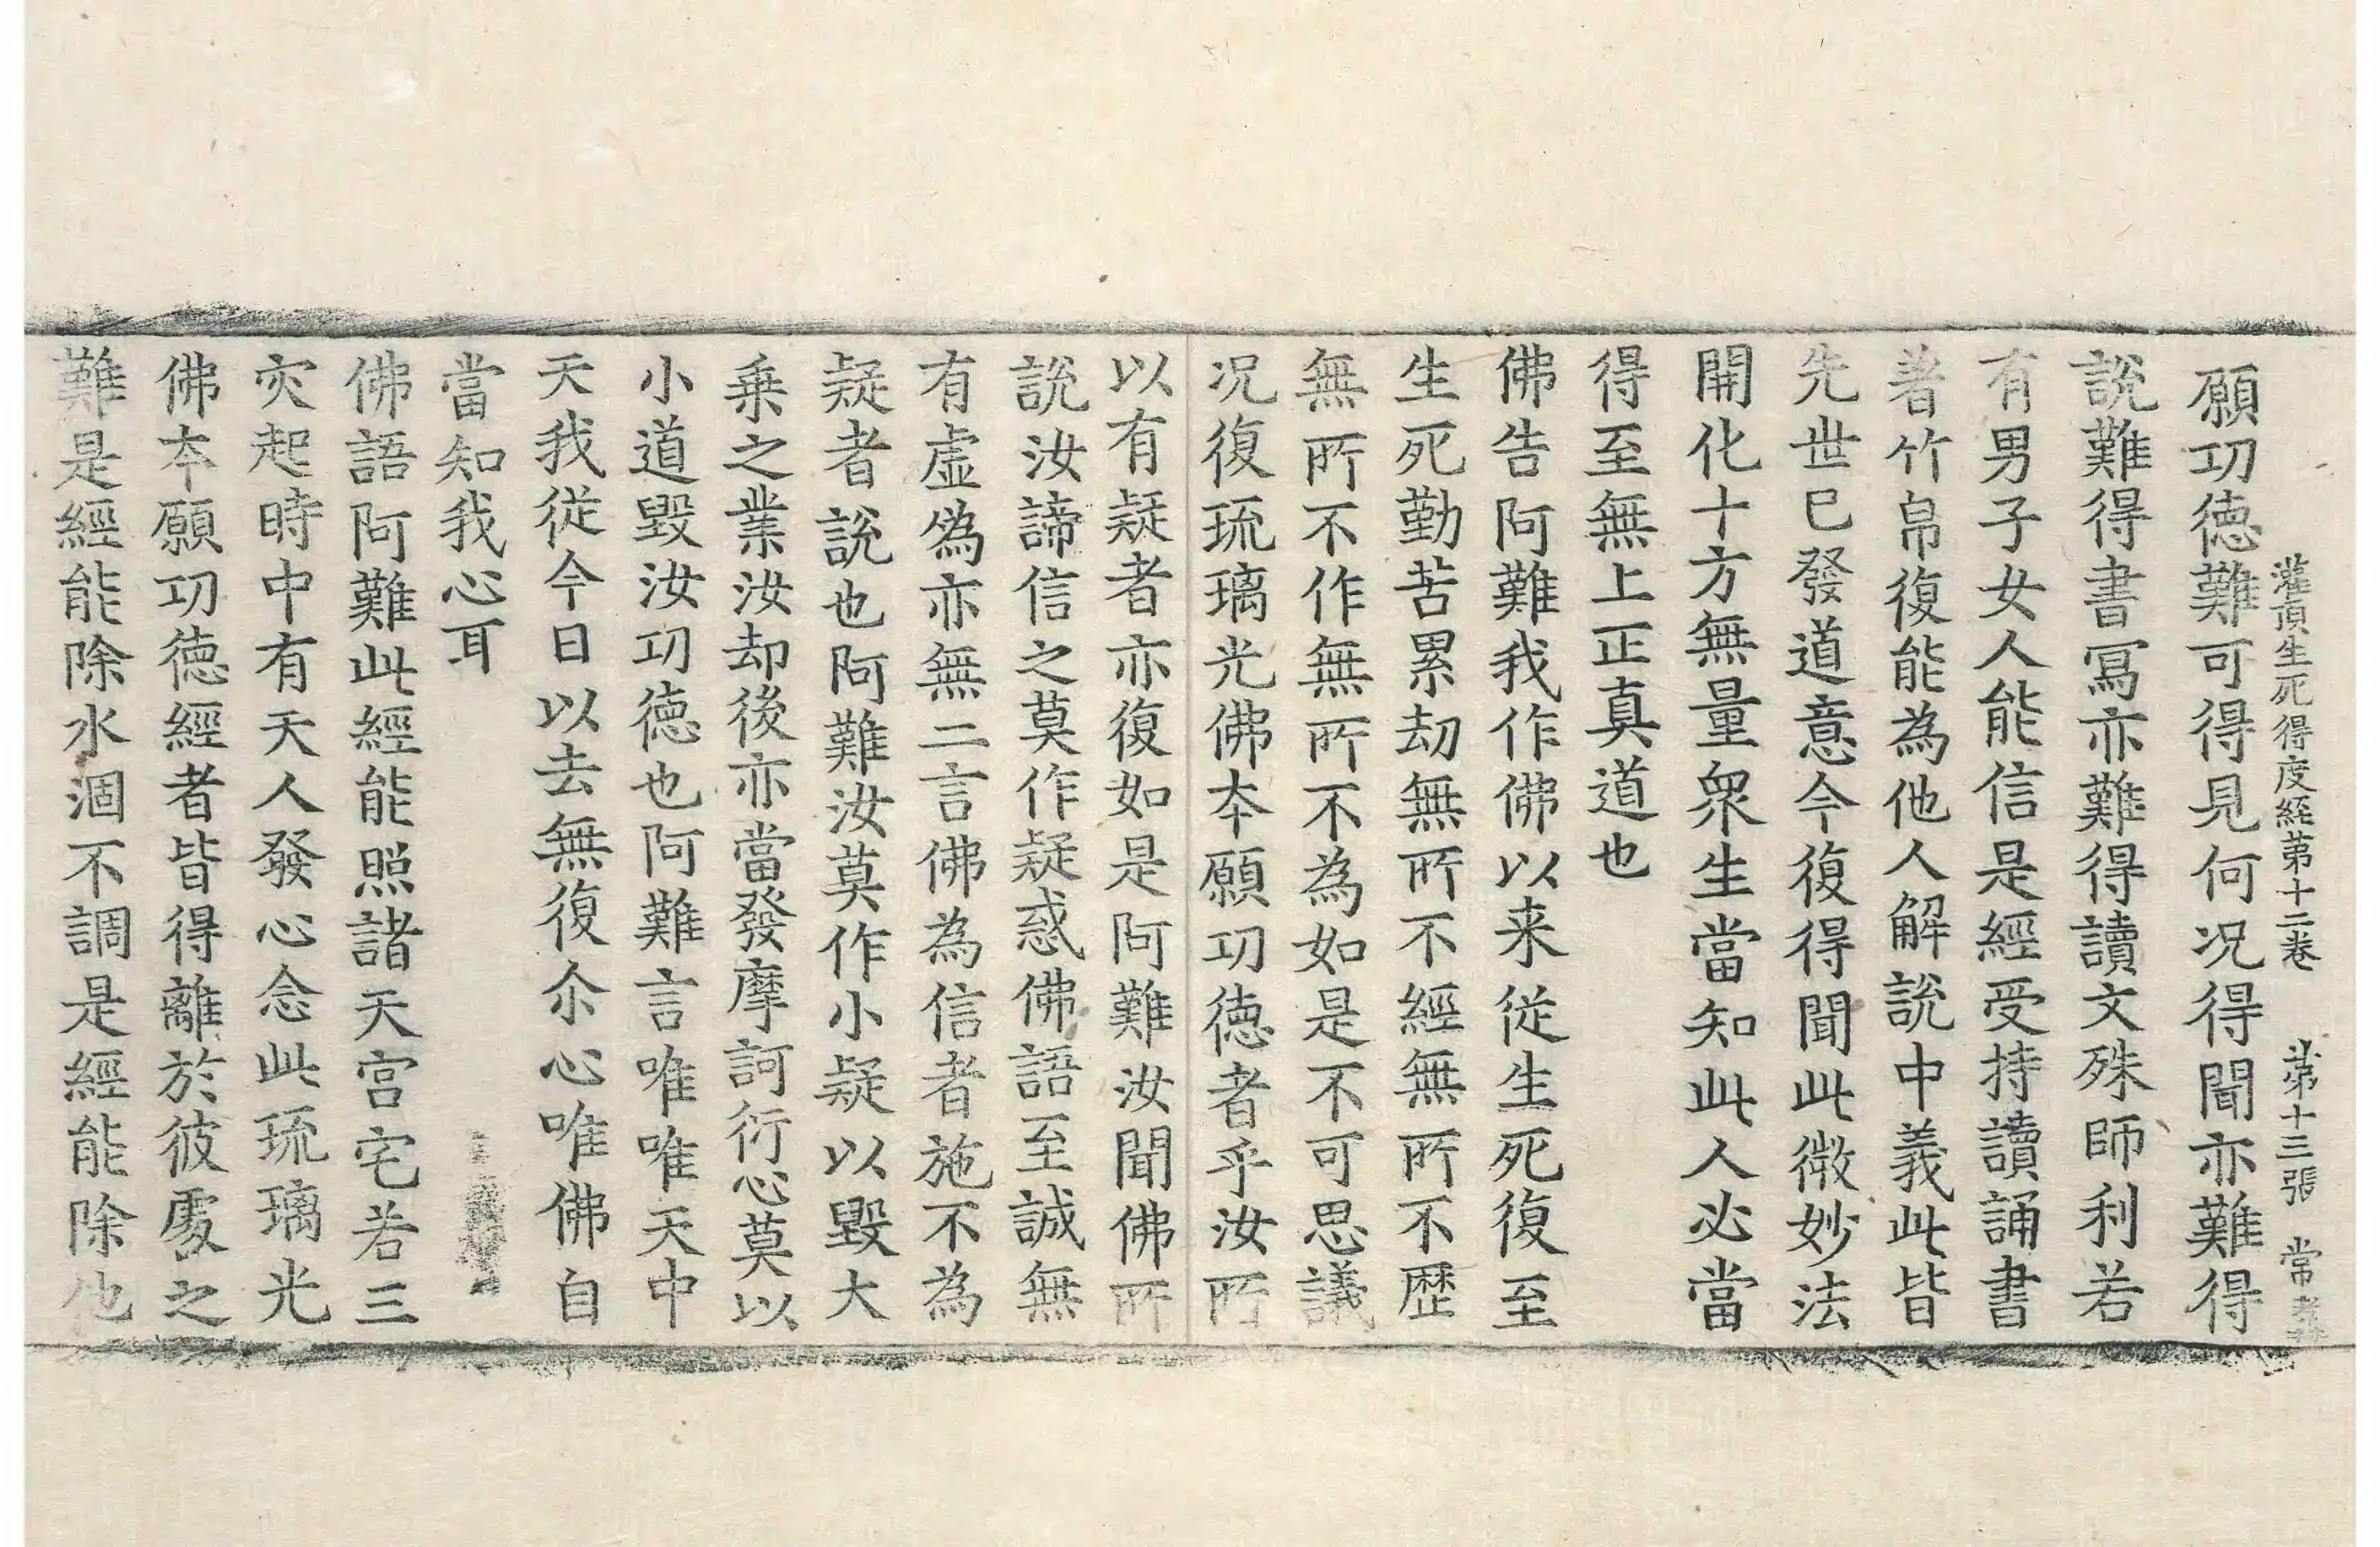 灌頂生死得度經第十二卷 第十三張 常
願功徳難可得見何况得聞亦難得
說難得書寫亦難得讀文殊師利若
有男子女人能信是經受持讀誦書
著竹帛復能為他人解說中義此皆
先世已發道意今復得聞此微妙法
開化十方無量衆生當知此人必當
得至無上正真道也
佛告阿難我作佛以来從生死復至
生死勤苦累劫無所不經無所不歷
無所不作無所不為如是不可思議
况復琉璃光佛夲願功徳者乎汝所
以有疑者亦復如是阿難汝聞佛所
說汝諦信之莫作疑惑佛語至誠無
有虛偽亦無二言佛為信者施不為
疑者說也阿難汝莫作小疑以毀大
乗之業汝却後亦當發摩訶衍心莫以
小道毀汝功徳也阿難言唯唯天中
天我從今日以去無復尒心唯佛自
當知我心耳
佛語阿難此經能照諸天宮宅若三
灾起時中有天人發心念此琉璃光
佛夲願功徳經者皆得離於彼處之
難是經能除水涸不調是經能除他